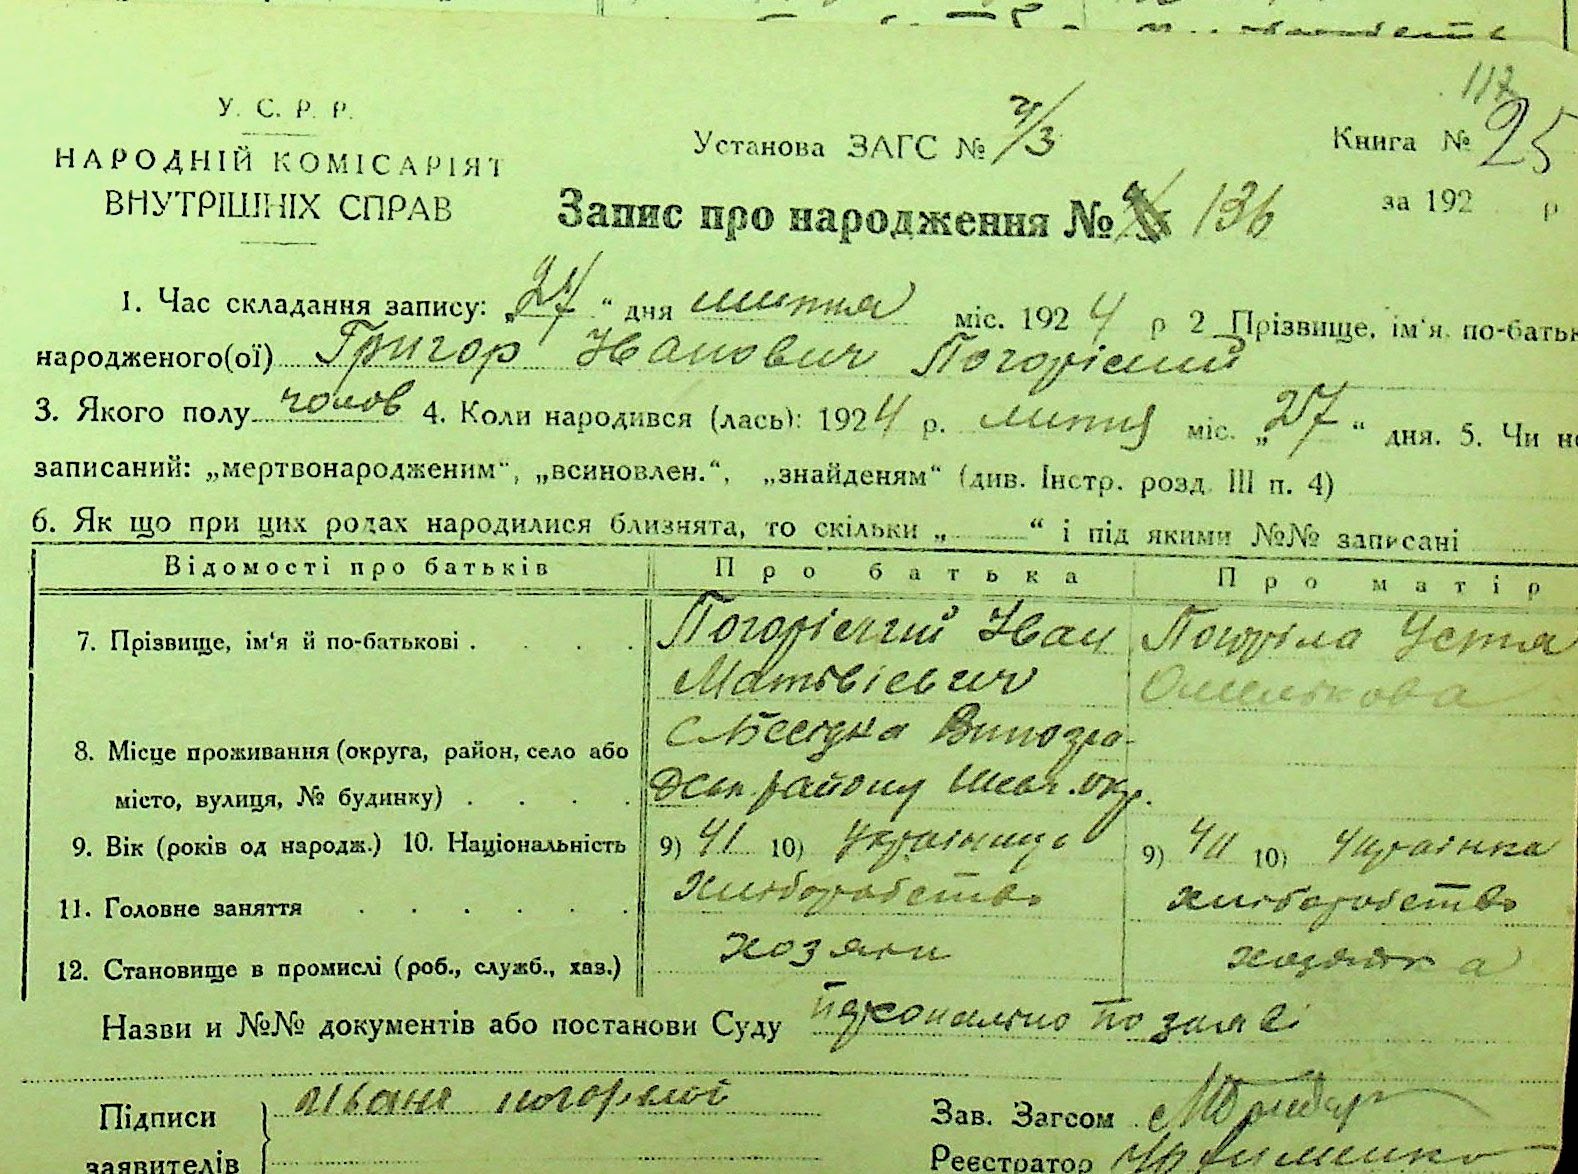 117
У. С. Р. Р.
НАРОДНІЙ КОМІСАРІЯТ
ВНУТРІШНІХ СПРАВ
Установа ЗАГС №
Книга № 25
за 192 р
Запис про народження № 136
1. Час складання запису: „27“ дня липня міс. 1924 р 2 Прізвище, ім'я, по-батьк
народженого(ої) Григор Иванович Погорілий
3. Якого полу чолов 4. Коли народився (лась): 1924 р. липня міс. „27“ дня. 5. Чи не
записаний: „мертвонародженим“, „всиновлен.“, „знайденям“ (див. Інстр. розд. III п. 4)
6. Як що при цих родах народилися близнята, то скільки „ “ і під якими №№ записані
Відомості про батьків Про батька Про матір
7. Прізвище, ім'я й по-батькові . . . . Погорілий Иван Погоріла Устя
Матвієвич Омелькова
8. Місце проживання (округа, район, село або місто, вулиця, № будинку) . . . .
с Беседка Виногра-
дськ району Шевч. окр.
9. Вік (років од народж.) 10. Національність 9) 41 10) Українець 9) 40 10) Українка
11. Головне заняття . . . . . . хліборобство хліборобство
12. Становище в промислі (роб., служб., хаз.) хозяин хозяйка
Назви и №№ документів або постанови Суду персонально по заяві
Підписи
заявителів
Иванъ погорелой
Зав. Загсом
Реєстратор